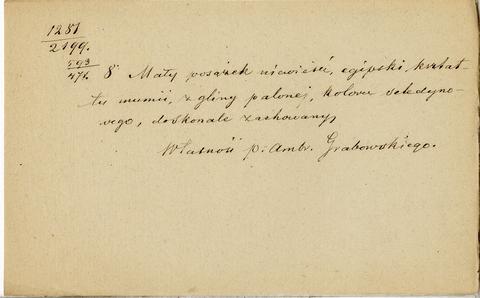 1281
2199.
593
471.
8 Mały posążek niewieści, egipski, kształ-
tu mumii, z gliny palonej, koloru seledyno-
wego, doskonale zachowany,
Własność p. Ambr. Grabowskiego.